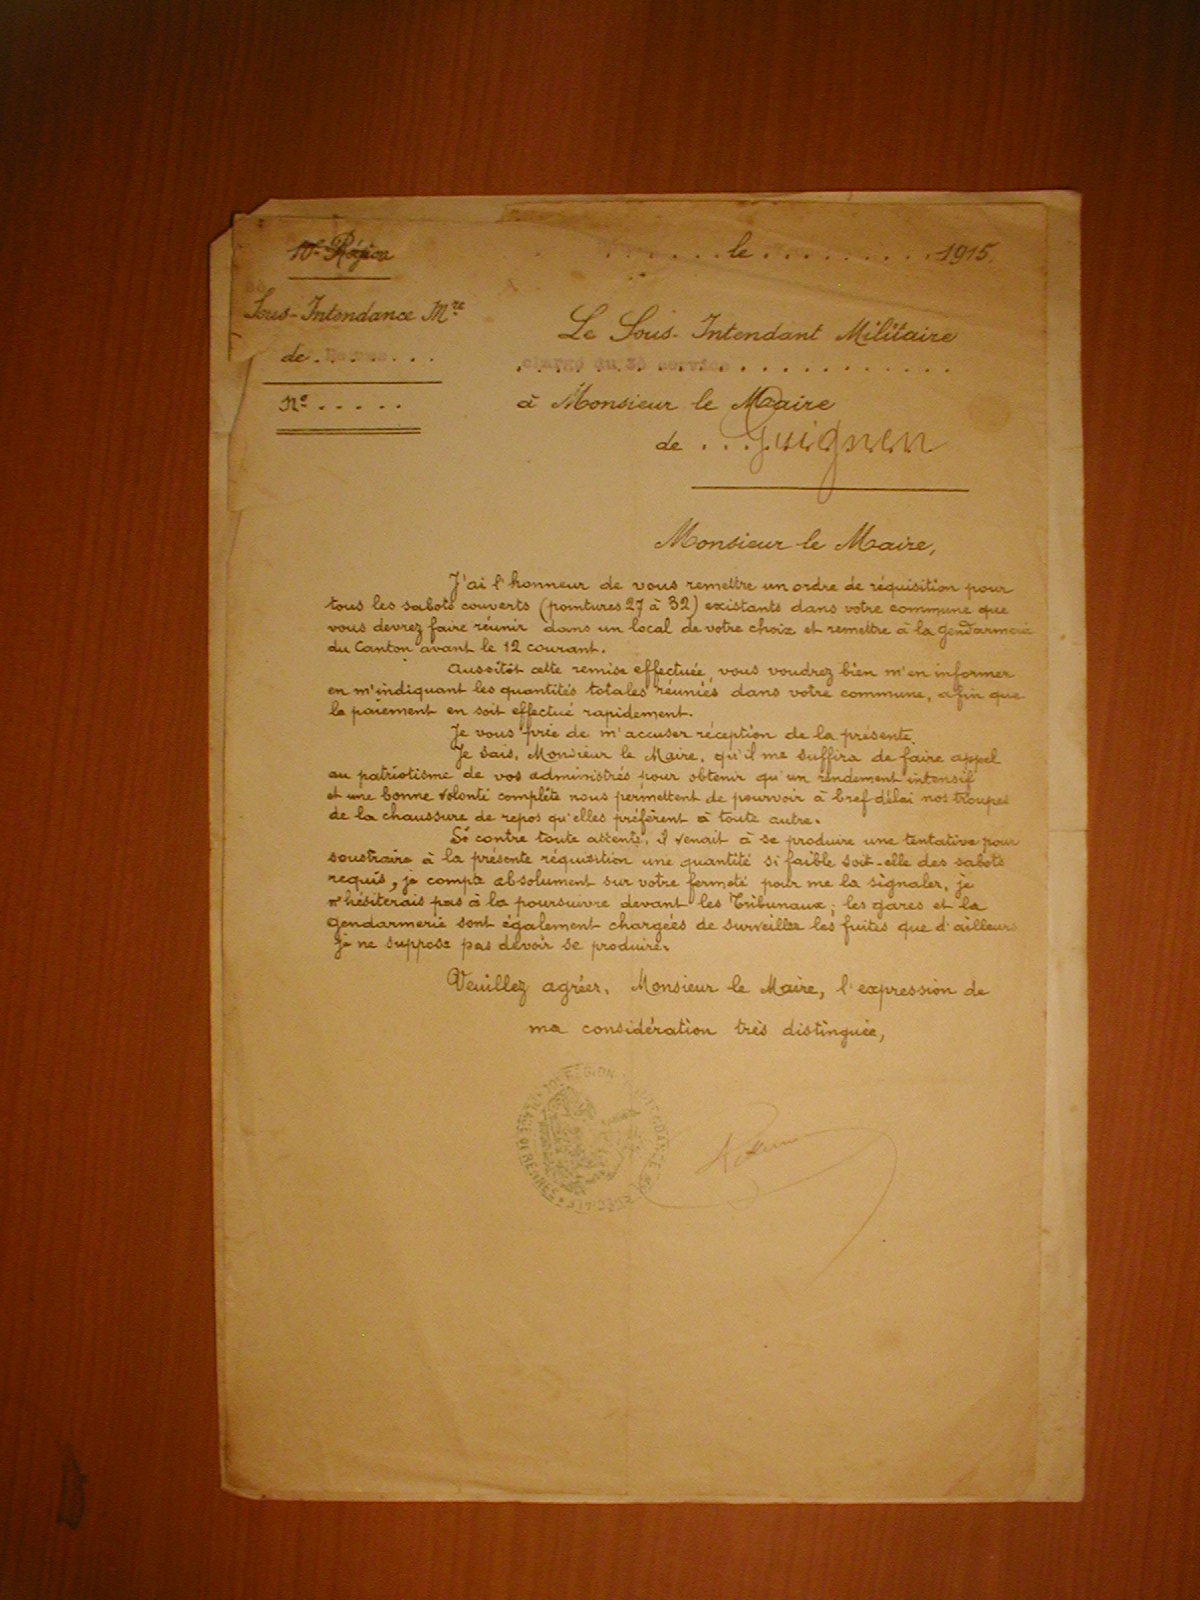 10e Région
le ......... 1915.
Sous-Intendance Mre
de . Rennes . . .
No . . . . .
Le Sous-Intendant Militaire
chargé du 3è service
à Monsieur le Maire
de . . . Guignen
Monsieur le Maire,
J'ai l'honneur de vous remettre un ordre de réquisition pour
tous les sabots couverts (pointures 27 à 32) existants dans votre commune que
vous devrez faire réunir dans un local de votre choix et remettre à la gendarmerie
du Canton avant le 12 courant.
Aussitôt cette remise effectuée, vous voudrez bien m'en informer
en m'indiquant les quantités totales réunies dans votre commune, afin que
le paiement en soit effectué rapidement.
Je vous prie de m'accuser réception de la présente.
Je sais, Monsieur le Maire, qu'il me suffira de faire appel
au patriotisme de vos administrés pour obtenir qu'un rendement intensif
et une bonne volonté complète nous permettent de pourvoir à bref délai nos troupes
de la chaussure de repos qu'elles préfèrent à toute autre.
Si contre toute attente, il venait à se produire une tentative pour
soustraire à la présente réquisition une quantité si faible soit-elle des sabots
requis, je compte absolument sur votre fermeté pour me la signaler, je
n'hésiterais pas à la poursuivre devant les Tribunaux; les gares et la
gendarmerie sont également chargées de surveiller les fuites que d'ailleurs
je ne suppose pas devoir se produire.
Veuillez agréer, Monsieur le Maire, l'expression de
ma considération très distinguée,
RÉGION
RENNES